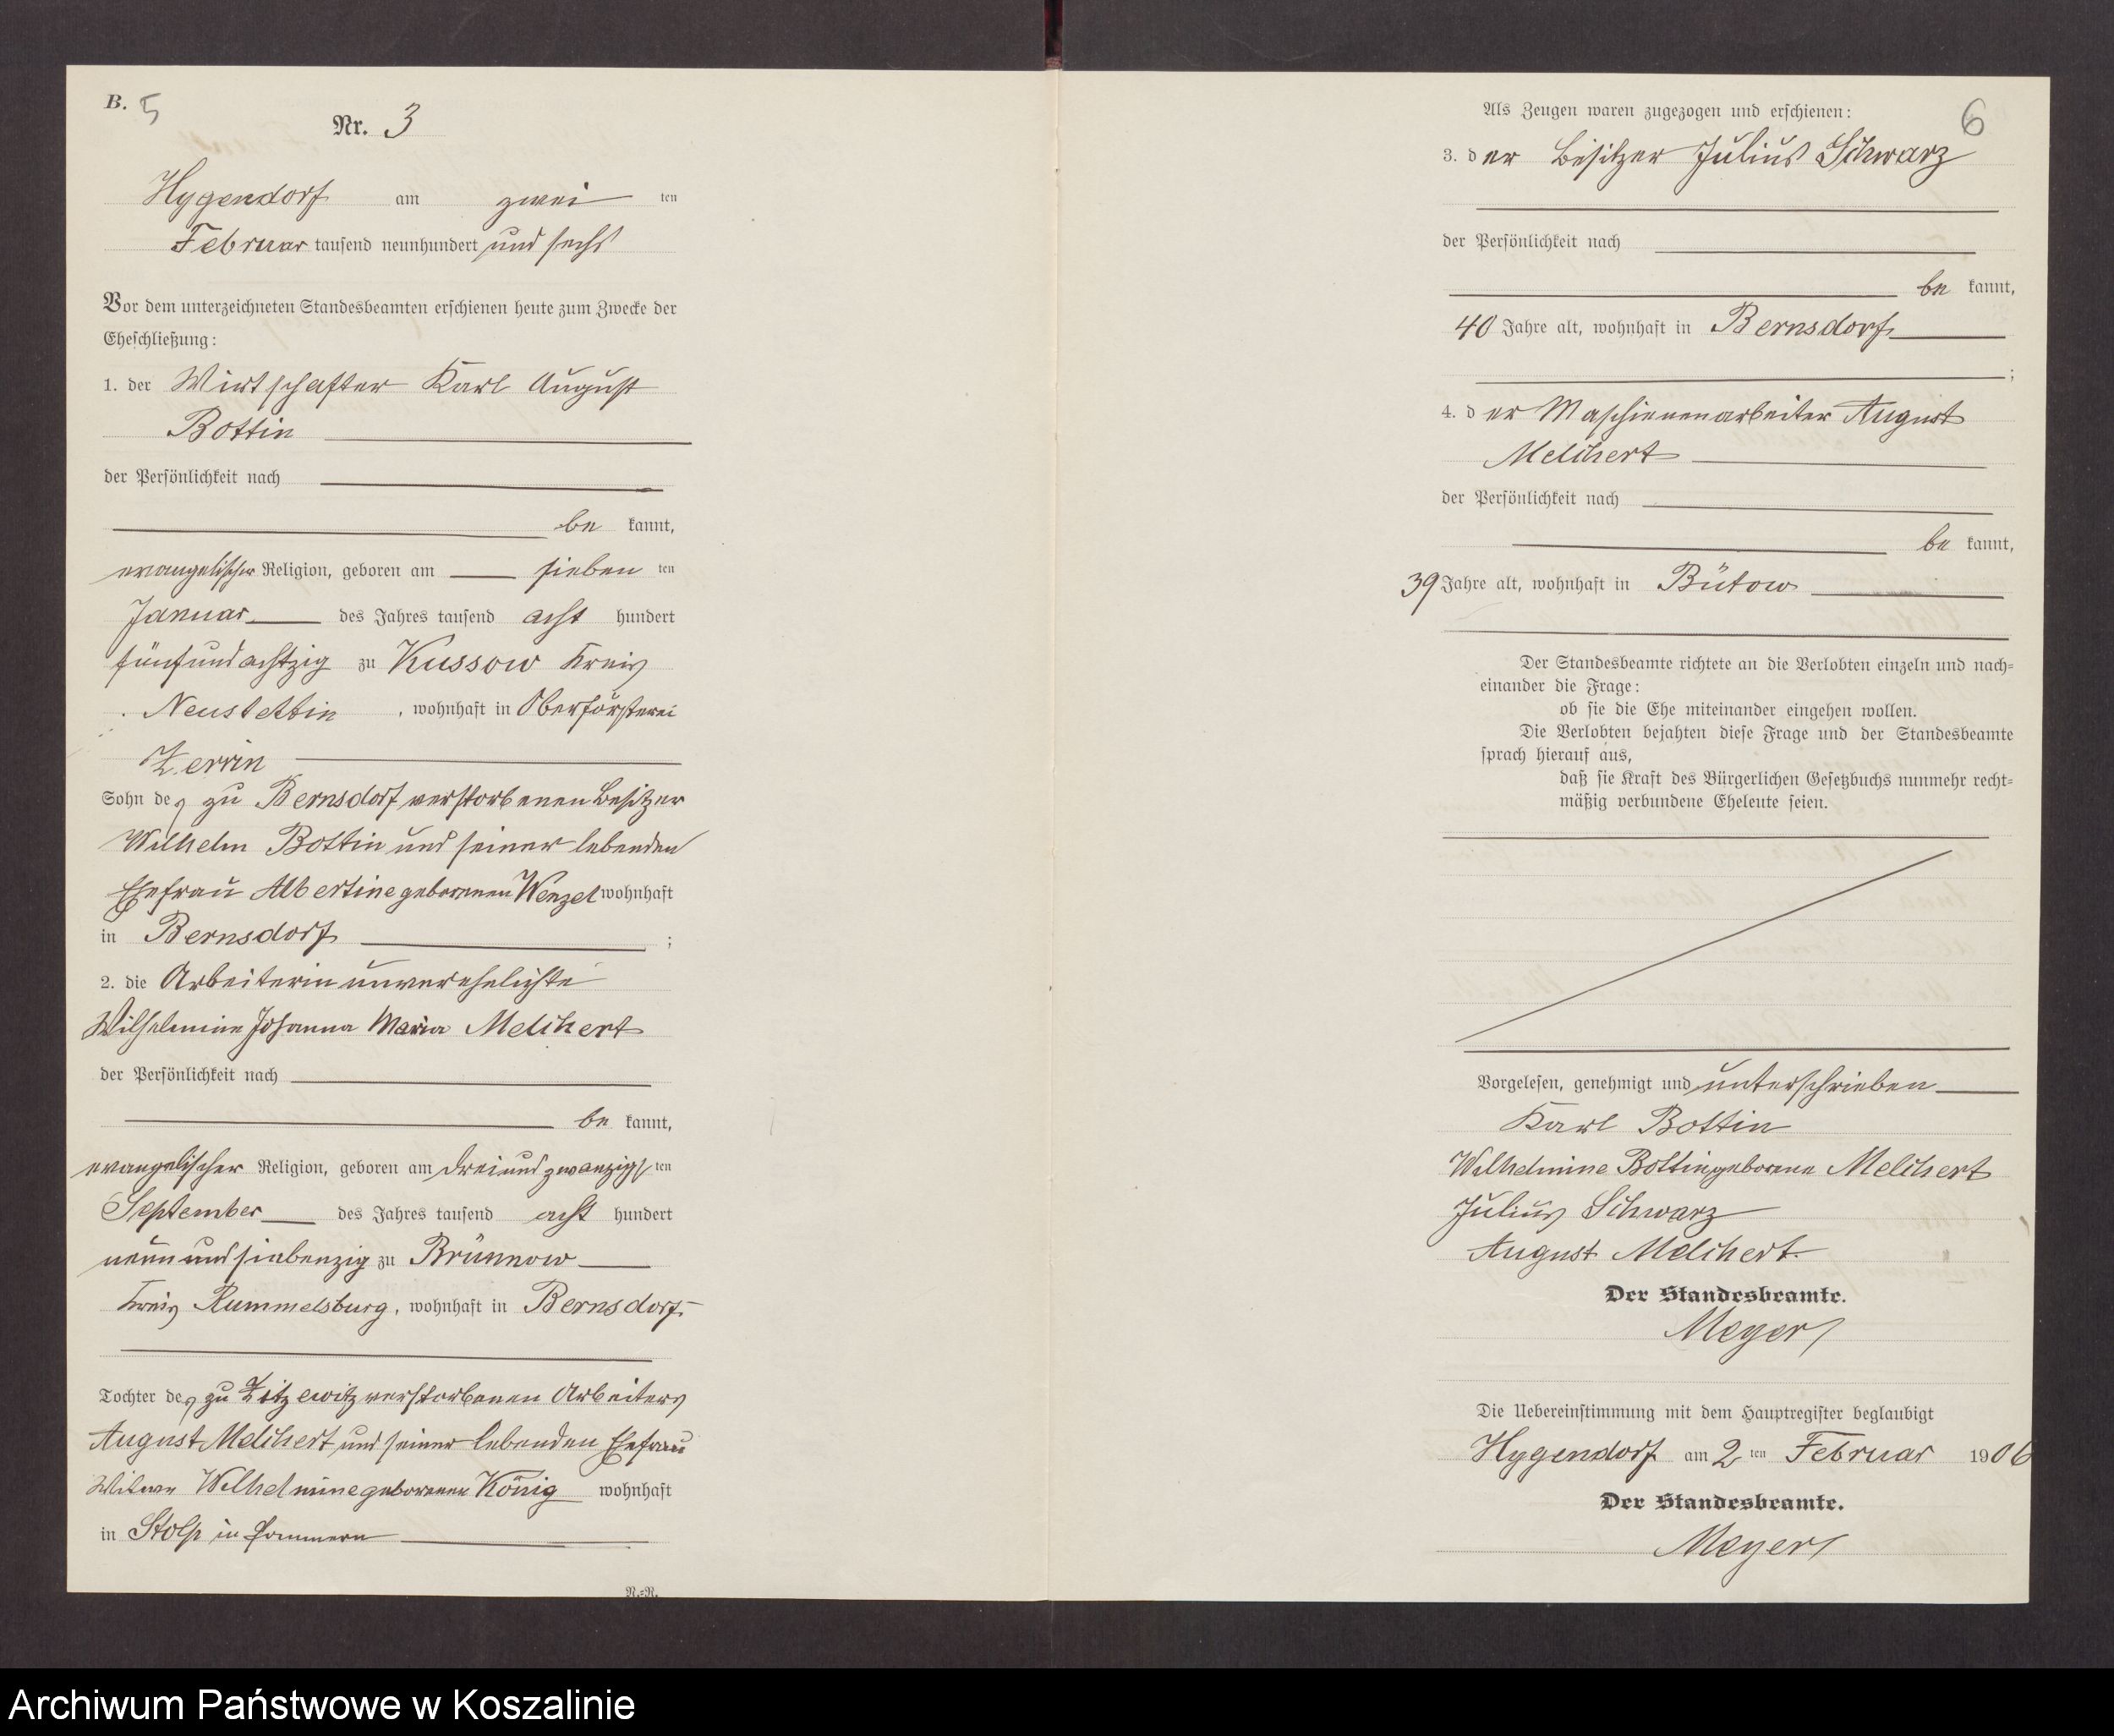 B. 5
Nr. 3
Hygendorf am zwei ten
Februar tausend neunhundert und sechs
Vor dem unterzeichneten Standesbeamten erschienen heute zum Zwecke der
Eheschließung:
1. der Wirtschafter Karl August
Bottin
der Persönlichkeit nach
be kannt,
evangelischer Religion, geboren am sieben ten
Januar des Jahres tausend acht hundert
fünfundachtzig zu Kussow Kreis
Neustettin, wohnhaft in Oberförsterei
Zerrin
Sohn des zu Bernsdorf verstorbenen Besitzer
Wilhelm Bottin und seiner lebenden
Ehefrau Albertine geborenen Wenzel wohnhaft
in Bernsdorf ;
2. die Arbeiterin unverehelichte
Wilhelmine Johanna Maria Melchert
der Persönlichkeit nach
be kannt,
evangelischer Religion, geboren am dreiundzwanzigsten
September des Jahres tausend acht hundert
neunundsiebenzig zu Brünnow
Kreis Rummelsburg, wohnhaft in Bernsdorf
Tochter des zu Zitzewitz verstorbenen Arbeiters
August Melchert und seiner lebenden Ehefrau
Witwe Wilhelmine geborenen König wohnhaft
in Stolp in Pommern
R.=R.
6
Als Zeugen waren zugezogen und erschienen:
3. der Besitzer Julius Schwarz
der Persönlichkeit nach
be kannt,
40 Jahre alt, wohnhaft in Bernsdorf
;
4. der Maschienenarbeiter August
Melchert
der Persönlichkeit nach
be kannt,
39 Jahre alt, wohnhaft in Bütow
Der Standesbeamte richtete an die Verlobten einzeln und nach=
einander die Frage:
ob sie die Ehe miteinander eingehen wollen.
Die Verlobten bejahten diese Frage und der Standesbeamte
sprach hierauf aus,
daß sie kraft des Bürgerlichen Gesetzbuchs nunmehr recht=
mäßig verbundene Eheleute seien.
Vorgelesen, genehmigt und unterschrieben
Karl Bottin
Wilhelmine Bottin geborene Melchert
Julius Schwarz
August Melchert.
Der Standesbeamte.
Meyer
Die Uebereinstimmung mit dem Hauptregister beglaubigt
Hygendorf am 2 ten Februar 1906
Der Standesbeamte.
Meyer
Archiwum Państwowe w Koszalinie